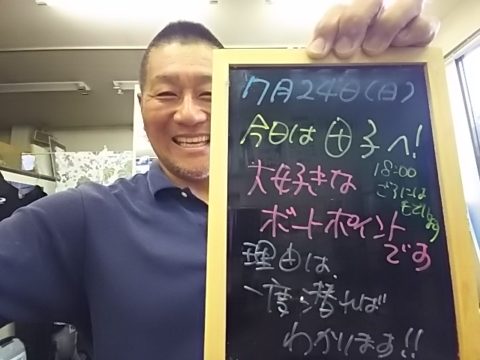 7月24日(日)
今日は田子へ!
18:00
ごろには
もどります
大好きな
ボートポイント
です
理由は
一度潜れば
わかります!!